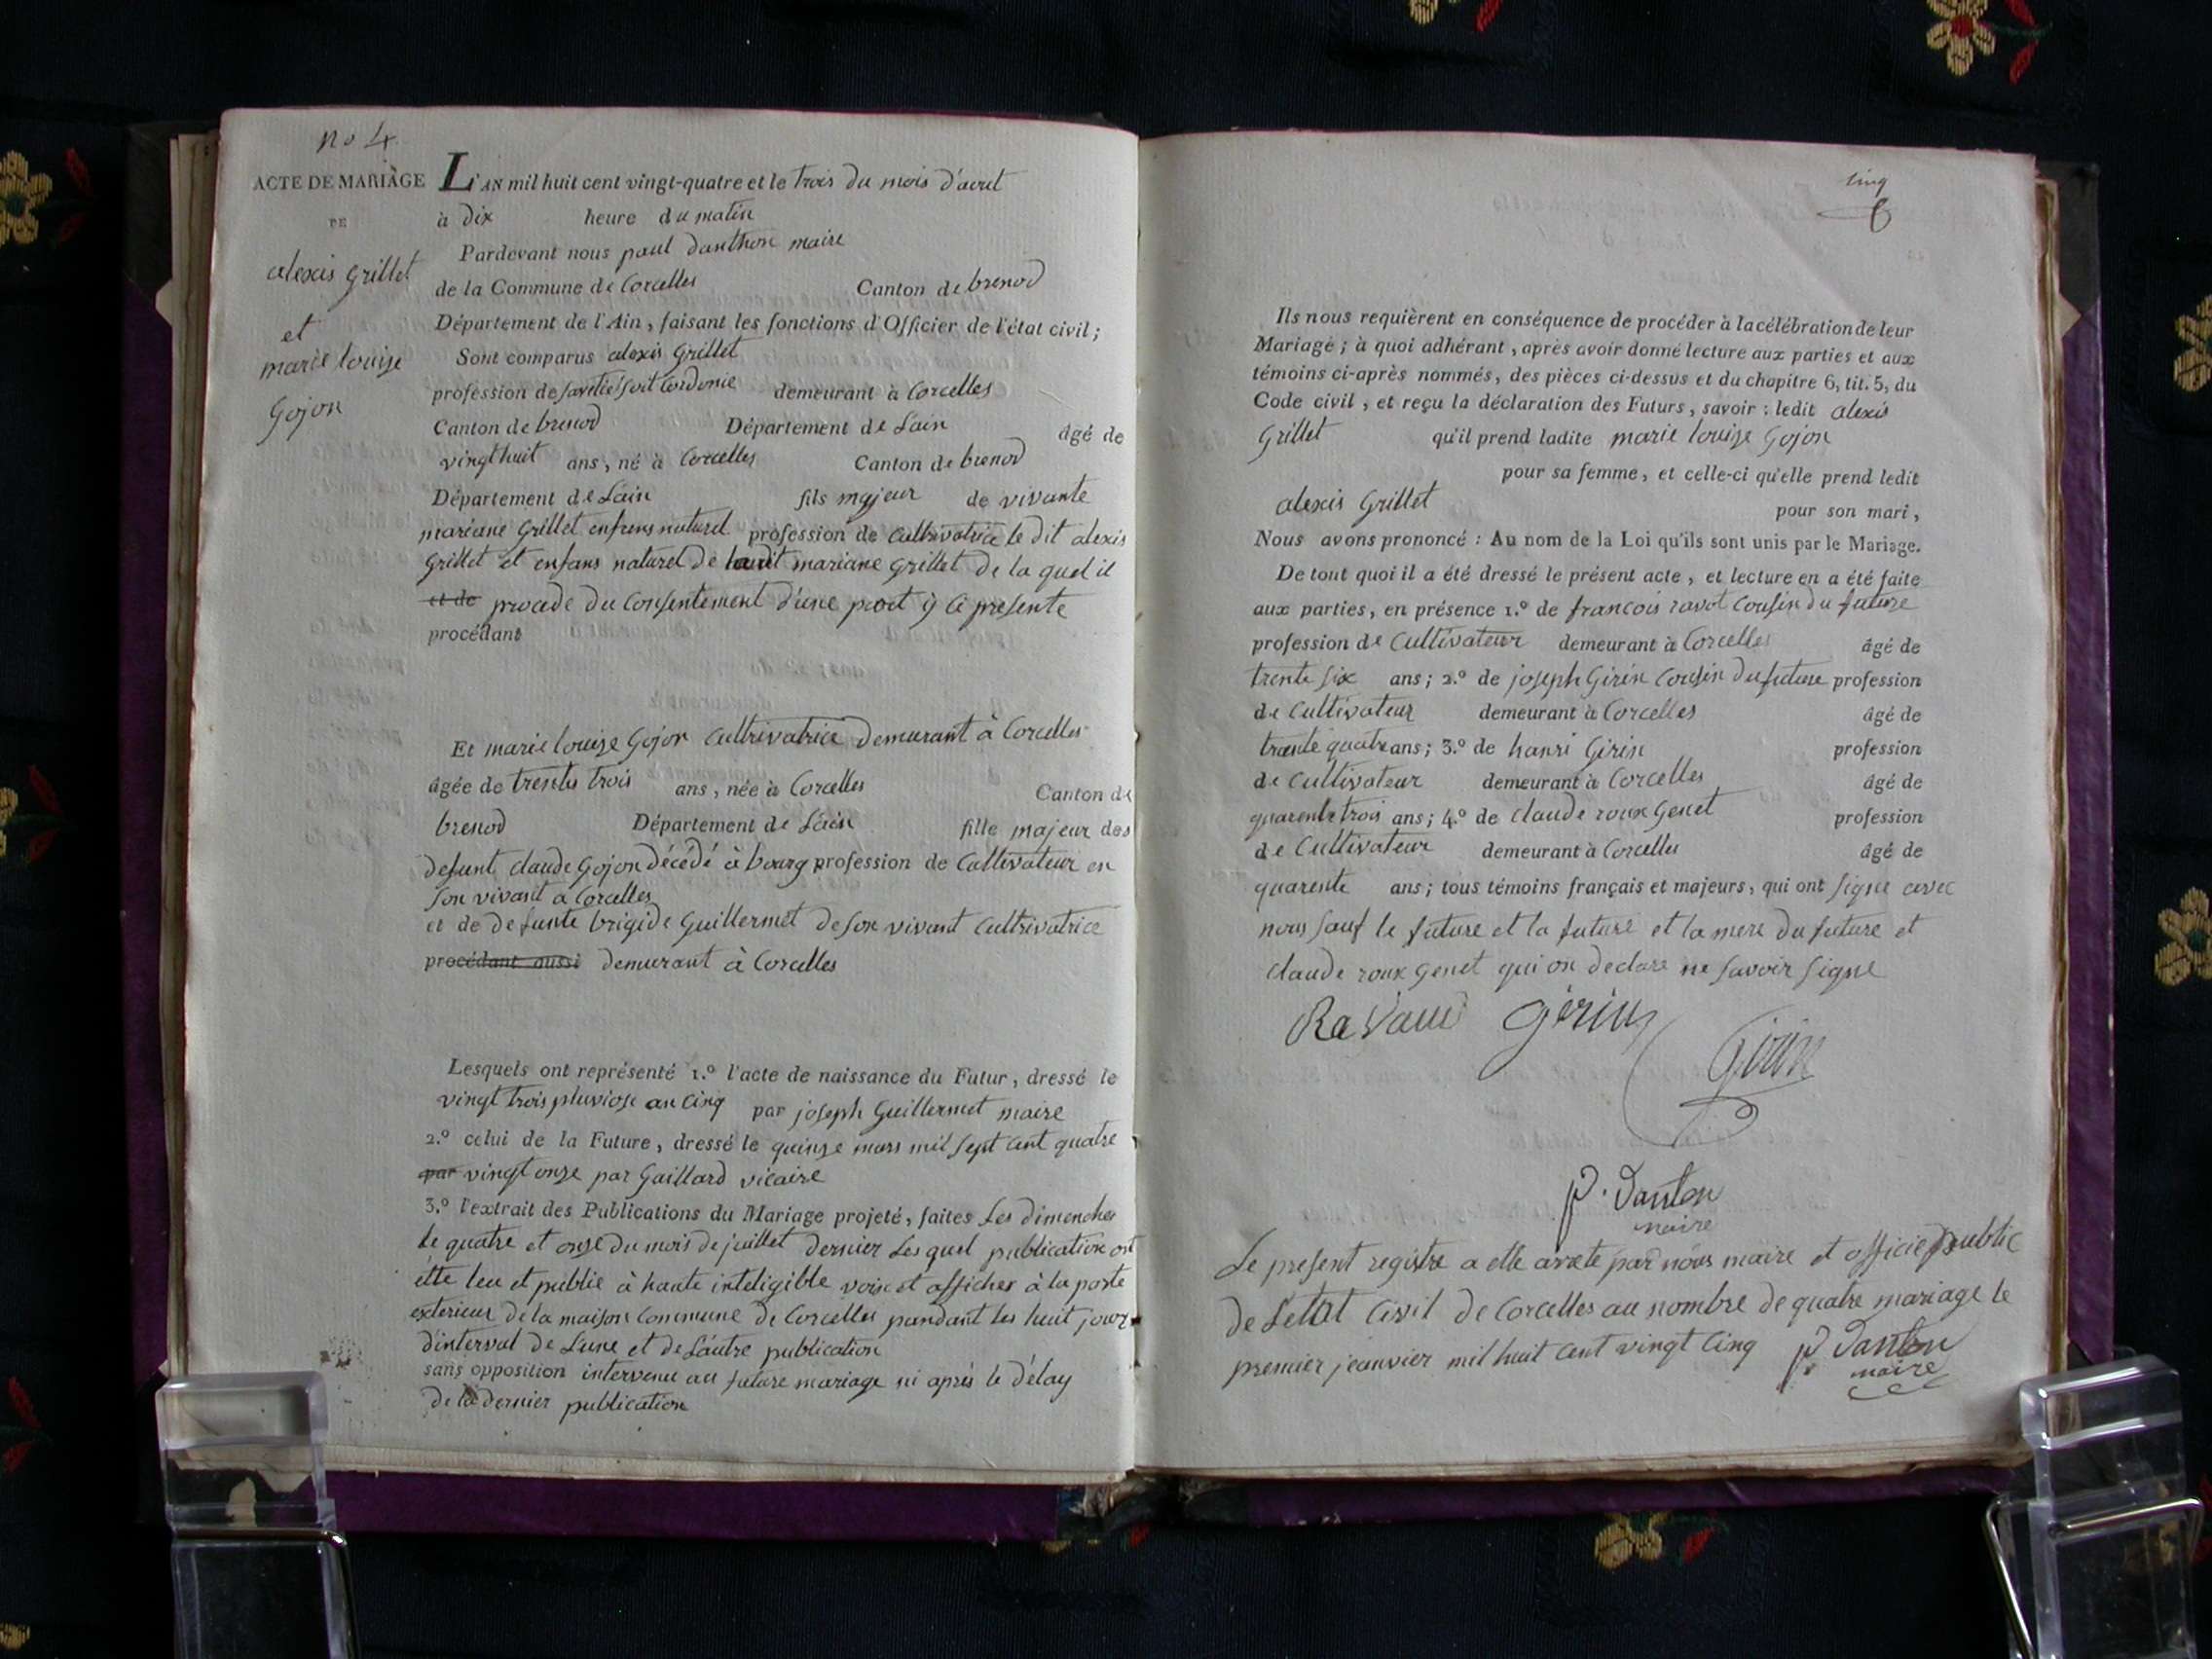 no 4
ACTE DE MARIAGE
DE
alexis Grillet
et
marie louise
Gojon
L'AN mil huit cent vingt-quatre et le trois du mois d'aout
à dix heure du matin
Pardevant nous paul danthon maire
de la Commune de Corcelles Canton de brenod
Département de l'Ain, faisant les fonctions d'Officier de l'état civil;
Sont comparus alexis Grillet
profession de soit Cordonie demeurant à Corcelles
Canton de brenod Département de Lain âgé de
vingt huit ans, né à Corcelles Canton de brenod
Département de Lain fils majeur de vivante
mariane Grillet enfens naturel profession de Cultivatrice le dit alexis
Grillet et enfans naturel de laudit mariane Grillet de la quel il
et de procede du Consentement d'une part y ci presente
procédant
Et marie louize Gojon Cultivatrice demurant à Corcelles
âgée de trente trois ans, née à Corcelles Canton de
brenod Département de Lain fille majeur des
defunt claude Gojon décédé à bourg profession de Cultivateur en
son vivant a Corcelles
et de defunte brigide Guillermet de son vivant Cultivatrice
procédant aussi demurant à Corcelles
Lesquels ont représenté 1.º l'acte de naissance du Futur, dressé le
vingt trois pluviose an Cinq par joseph Guillermet maire
2.º celui de la Future, dressé le quinze mars mil sept cent quatre
par vingt onze par Gaillard vicaire
3.º l'extrait des Publications du Mariage projeté, faites Les dimenches
le quatre et onze du mois de juillet dernier Lesquel publication ont
étte leu et publie à haute inteligible voix et affiches à la porte
exterieur de la maison Commune de Corcelles pandant les huit jour
dinterval de Lune et de Lautre publication
sans opposition intervenu au future mariage ni après le délay
de la dernier publication
Cinq
Ils nous requièrent en conséquence de procéder à la célébration de leur
Mariage; à quoi adhérant, après avoir donné lecture aux parties et aux
témoins ci-après nommés, des pièces ci-dessus et du chapitre 6, tit. 5, du
Code civil, et reçu la déclaration des Futurs, savoir: ledit alexis
Grillet qu'il prend ladite marie louize Gojon
pour sa femme, et celle-ci qu'elle prend ledit
alexis Grillet pour son mari,
Nous avons prononcé: Au nom de la Loi qu'ils sont unis par le Mariage.
De tout quoi il a été dressé le présent acte, et lecture en a été faite
aux parties, en présence 1.º de francois ravot Cousin du future
profession de Cultivateur demeurant à Corcelles âgé de
trente six ans; 2.º de joseph Girin Cousin du future profession
de Cultivateur demeurant à Corcelles âgé de
trante quatre ans; 3.º de hanri Girin profession
de Cultivateur demeurant à Corcelles âgé de
quarente trois ans; 4.º de claude roux Genet profession
de Cultivateur demeurant à Corcelles âgé de
quarente ans; tous témoins français et majeurs, qui ont signe avec
nous sauf le future et la future et la mere du future et
claude roux genet qui on declare ne savoir signe
Ravaud Gérin
Girin
p. Danton
maire
Le present registre a ette arrete par nous maire et officie public
de Letat Civil de Corcelles au nombre de quatre mariage le
premier jeanvier mil huit Cent vingt Cinq p. Danton
maire